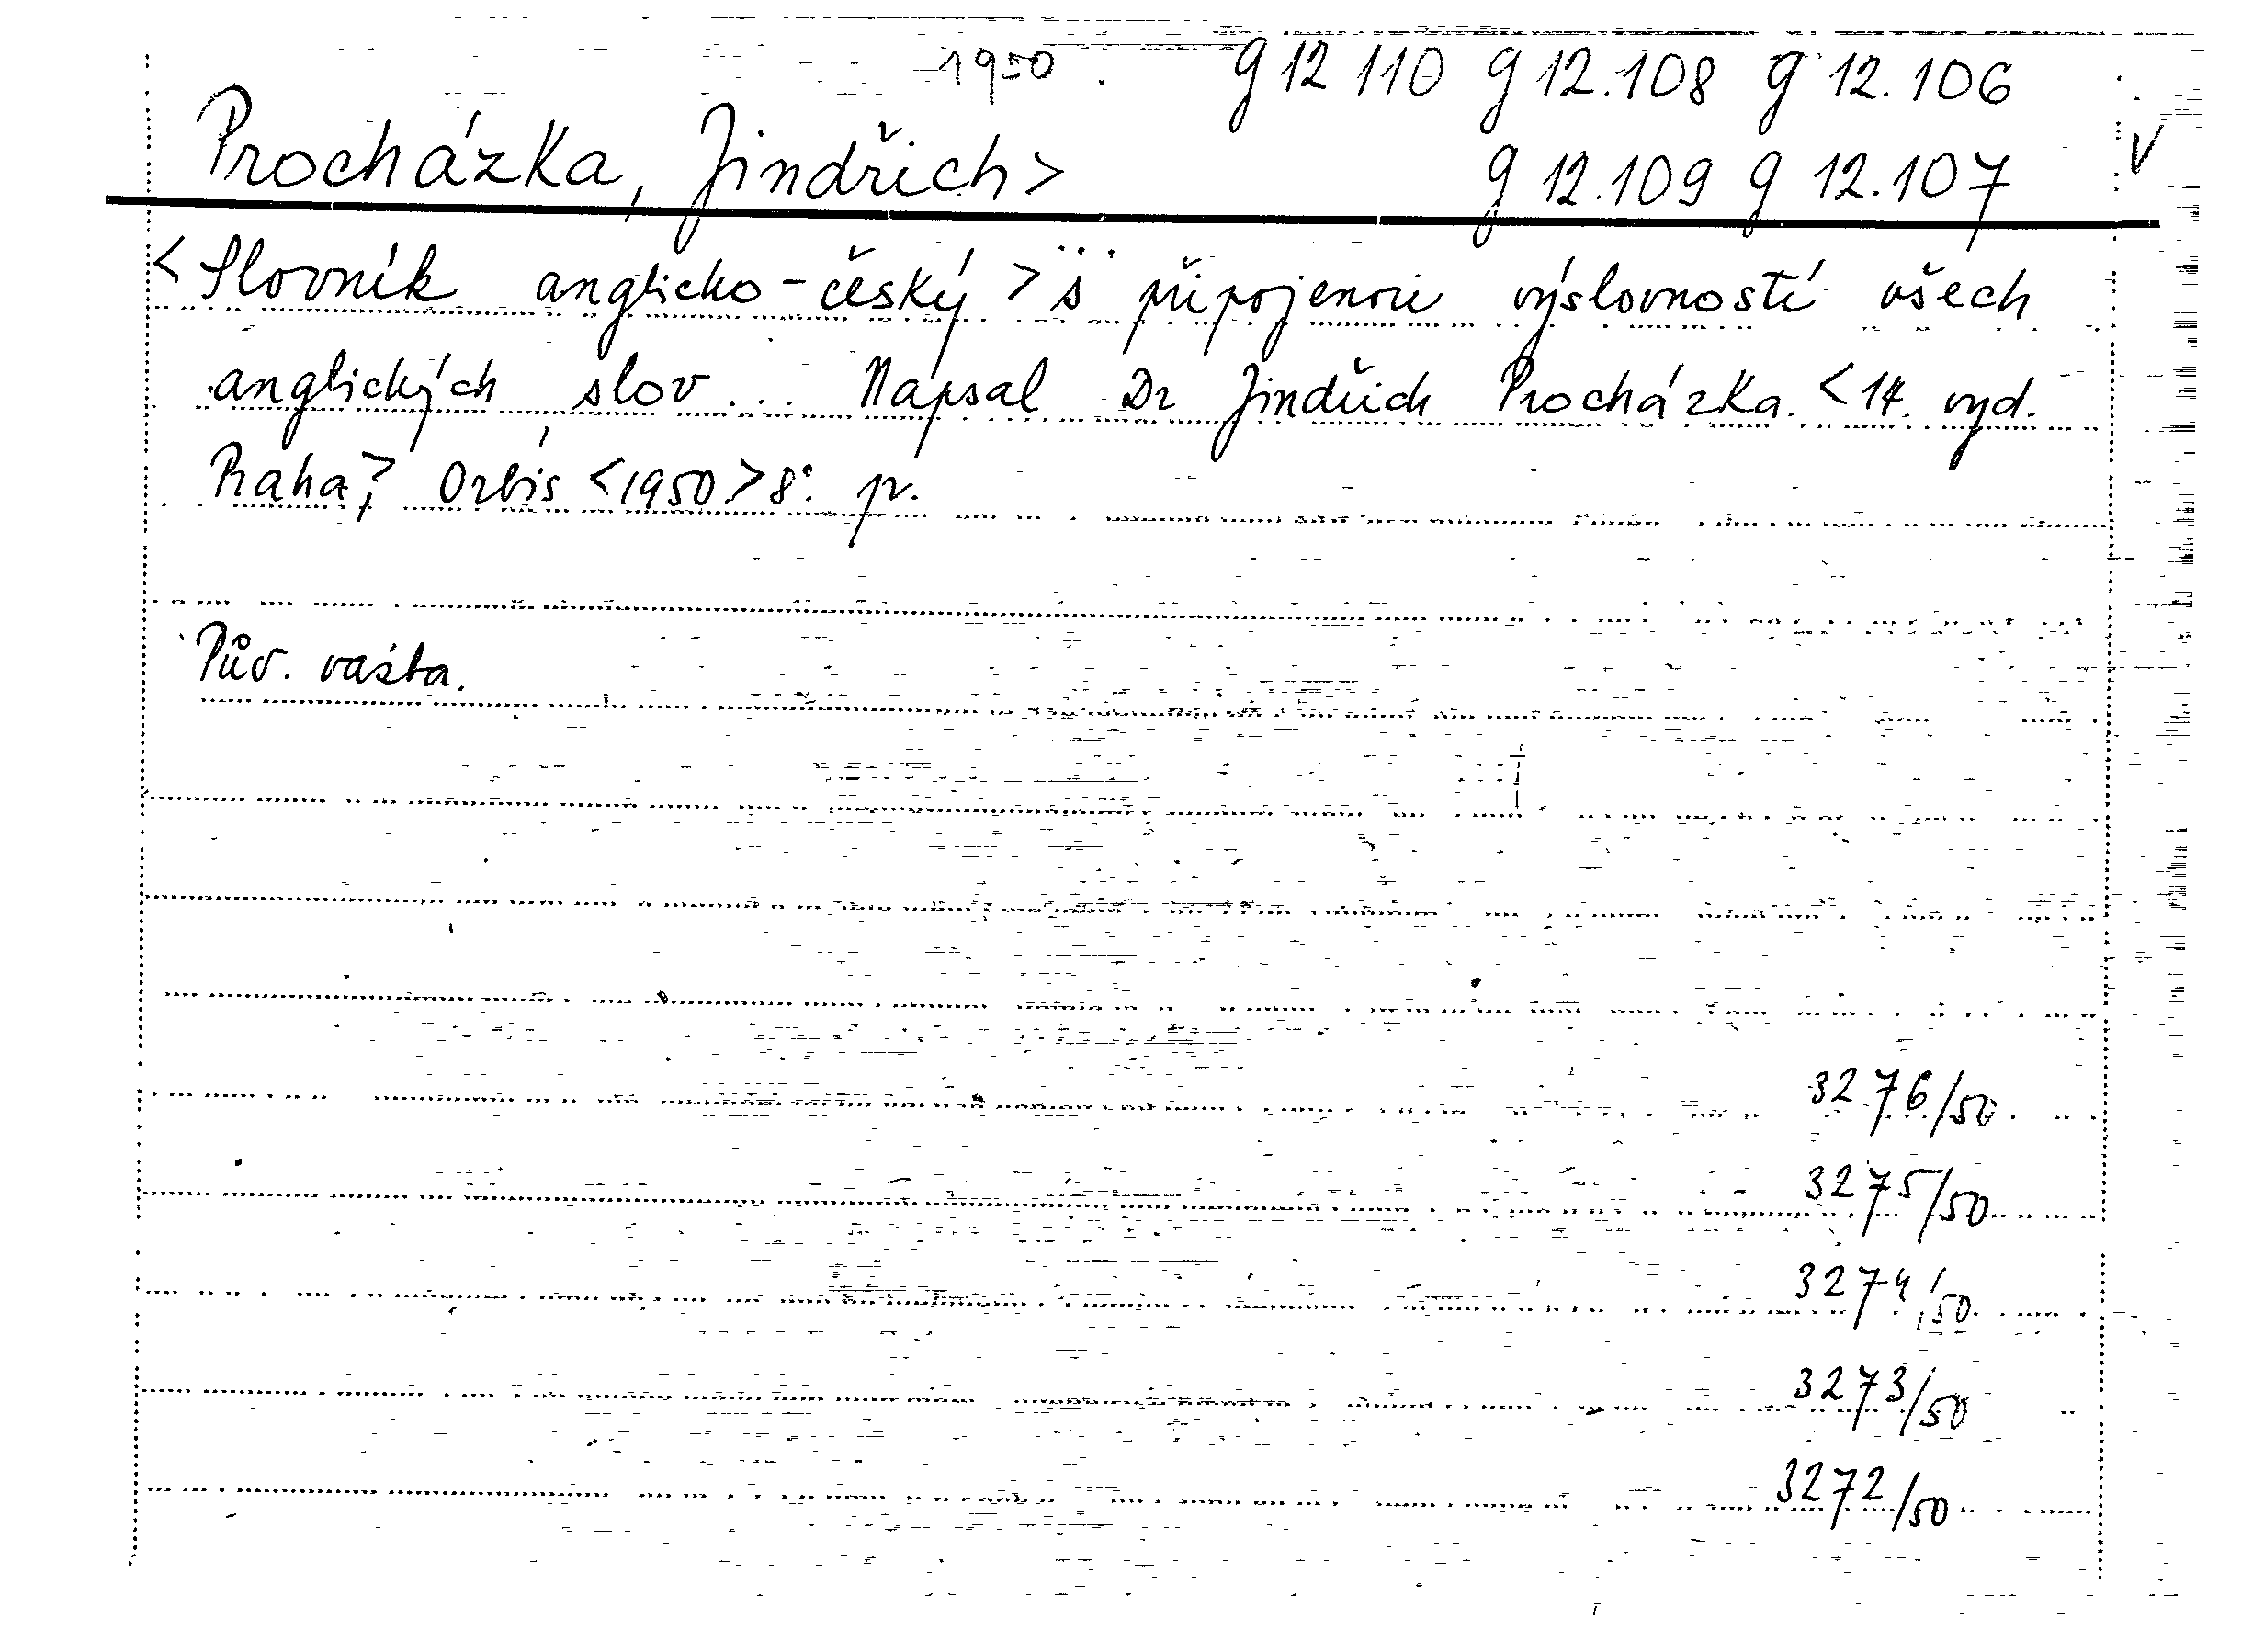 1950. g 12 110 g 12.108 g 12.106
Procházka, Jindřich> g 12.109 g 12.107 V
<Slovník anglicko-český> s připojenou výslovností všech
anglických slov... Napsal Dr Jindřich Procházka. <14. vyd.
Praha>, Orbis <1950> 8°. pv.
Pův. vazba.
3276/50
3275/50
3274/50
3273/50
3272/50